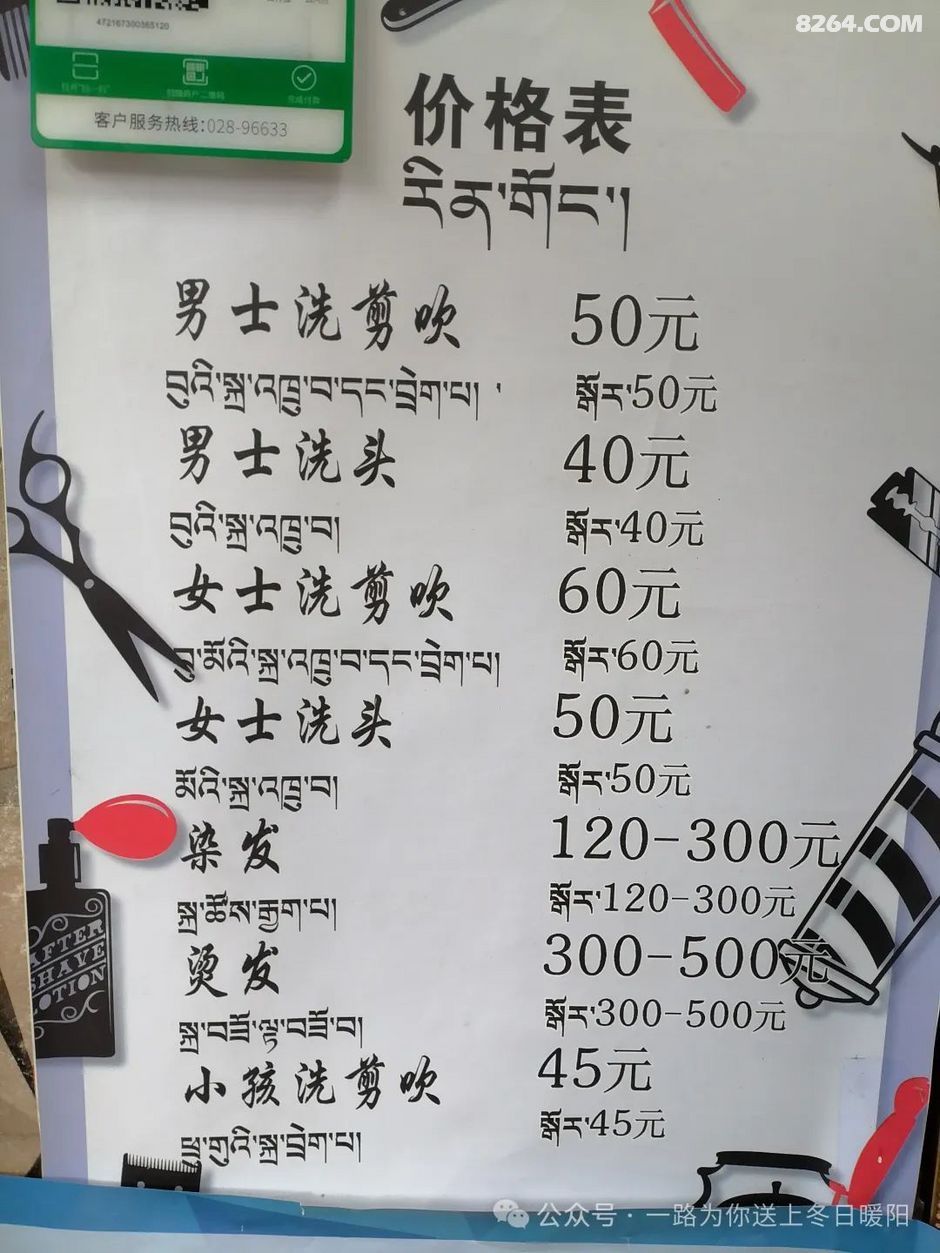 8264.COM
472167300365120
客户服务热线:028-96633
价格表
རིན་གོང་།
男士洗剪吹 50元
བུའི་སྐྲ་འཁྲུ་བ་དང་བྲེག་པ། སྒོར་50元
男士洗头 40元
བུའི་སྐྲ་འཁྲུ་བ། སྒོར་40元
女士洗剪吹 60元
བུ་མོའི་སྐྲ་འཁྲུ་བ་དང་བྲེག་པ། སྒོར་60元
女士洗头 50元
མོའི་སྐྲ་འཁྲུ་བ། སྒོར་50元
染发 120-300元
སྐྲ་ཚོས་རྒྱག་པ། སྒོར་120-300元
烫发 300-500元
སྐྲ་བཟོ་ལྟ་བཟོ་བ། སྒོར་300-500元
小孩洗剪吹 45元
ཕྲུ་གུའི་སྐྲ་བྲེག་པ། སྒོར་45元
AFTER
SHAVE
LOTION
公众号·一路为你送上冬日暖阳